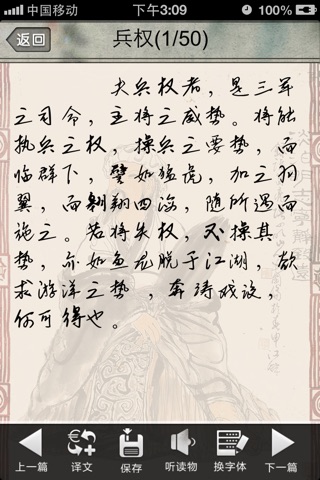 中国移动 下午3:09 100%
返回 兵权(1/50)
夫兵权者，是三军
之司令，主将之威势。将能
执兵之权，操兵之要势，而
临群下，譬如猛虎，加之羽
翼，而翱翔四海，随所遇而
施之。若将失权，不操其
势，亦如鱼龙脱于江湖，欲
求游洋之势，奔涛戏浪，
何可得也。
上一篇 译文 保存 听读物 换字体 下一篇